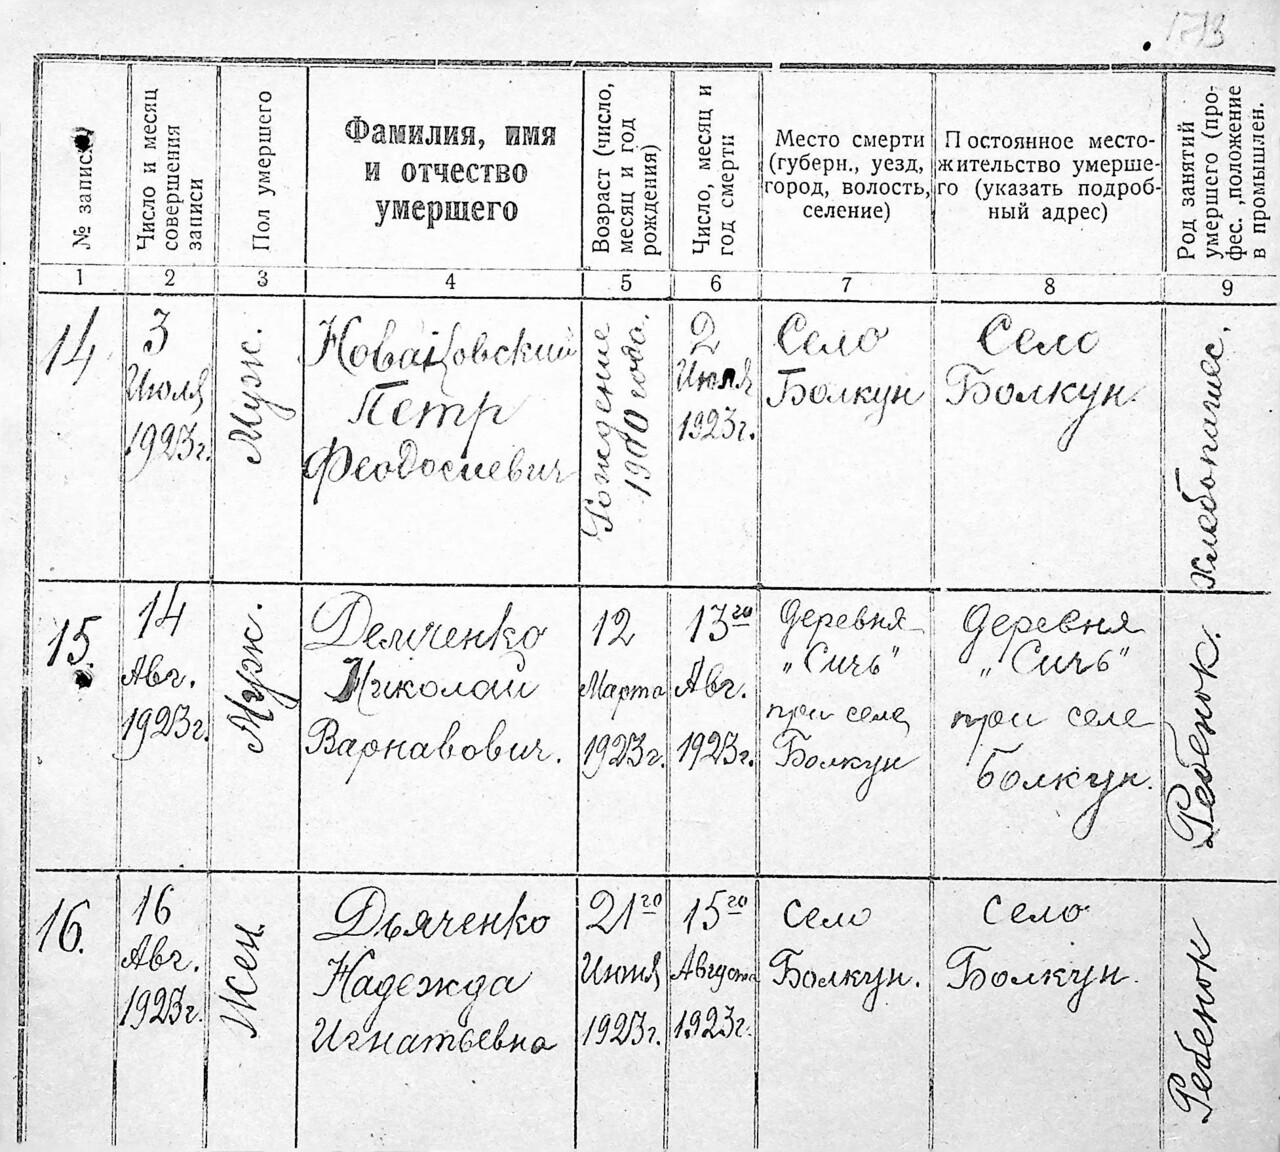 № записи
Число и месяц
совершения
записи
Пол умершего
Фамилия, имя
и отчество
умершего
Возраст (число,
месяц и год
рождения)
Число, месяц и
год смерти
Место смерти
(губерн., уезд,
город, волость,
селение)
Постоянное место-
жительство умерше-
го (указать подроб-
ный адрес)
Род занятий
умершего (про-
фес., положение
в промышлен.
1 2 3 4 5 6 7 8 9
14
3
Июля
1923г.
Муж.
Новаковский
Петр
Феодосиевич
Рождение
1900 года.
2
Июля
1923г.
Село
Болкун
Село
Болкун.
Хлебопашес.
15.
14
Авг.
1923г.
Муж.
Демченко
Николай
Варнавович.
12
Марта
1923г.
13го
Авг.
1923г.
Деревня
„Сичь"
при селе
Болкун
Деревня
„Сичь"
при селе
Болкун.
Ребенок.
16.
16
Авг.
1923г.
Жен.
Дьяченко
Надежда
Игнатьевна
21го
Июня
1923г.
15го
Августа
1923г.
Село
Болкун.
Село
Болкун.
Ребенок